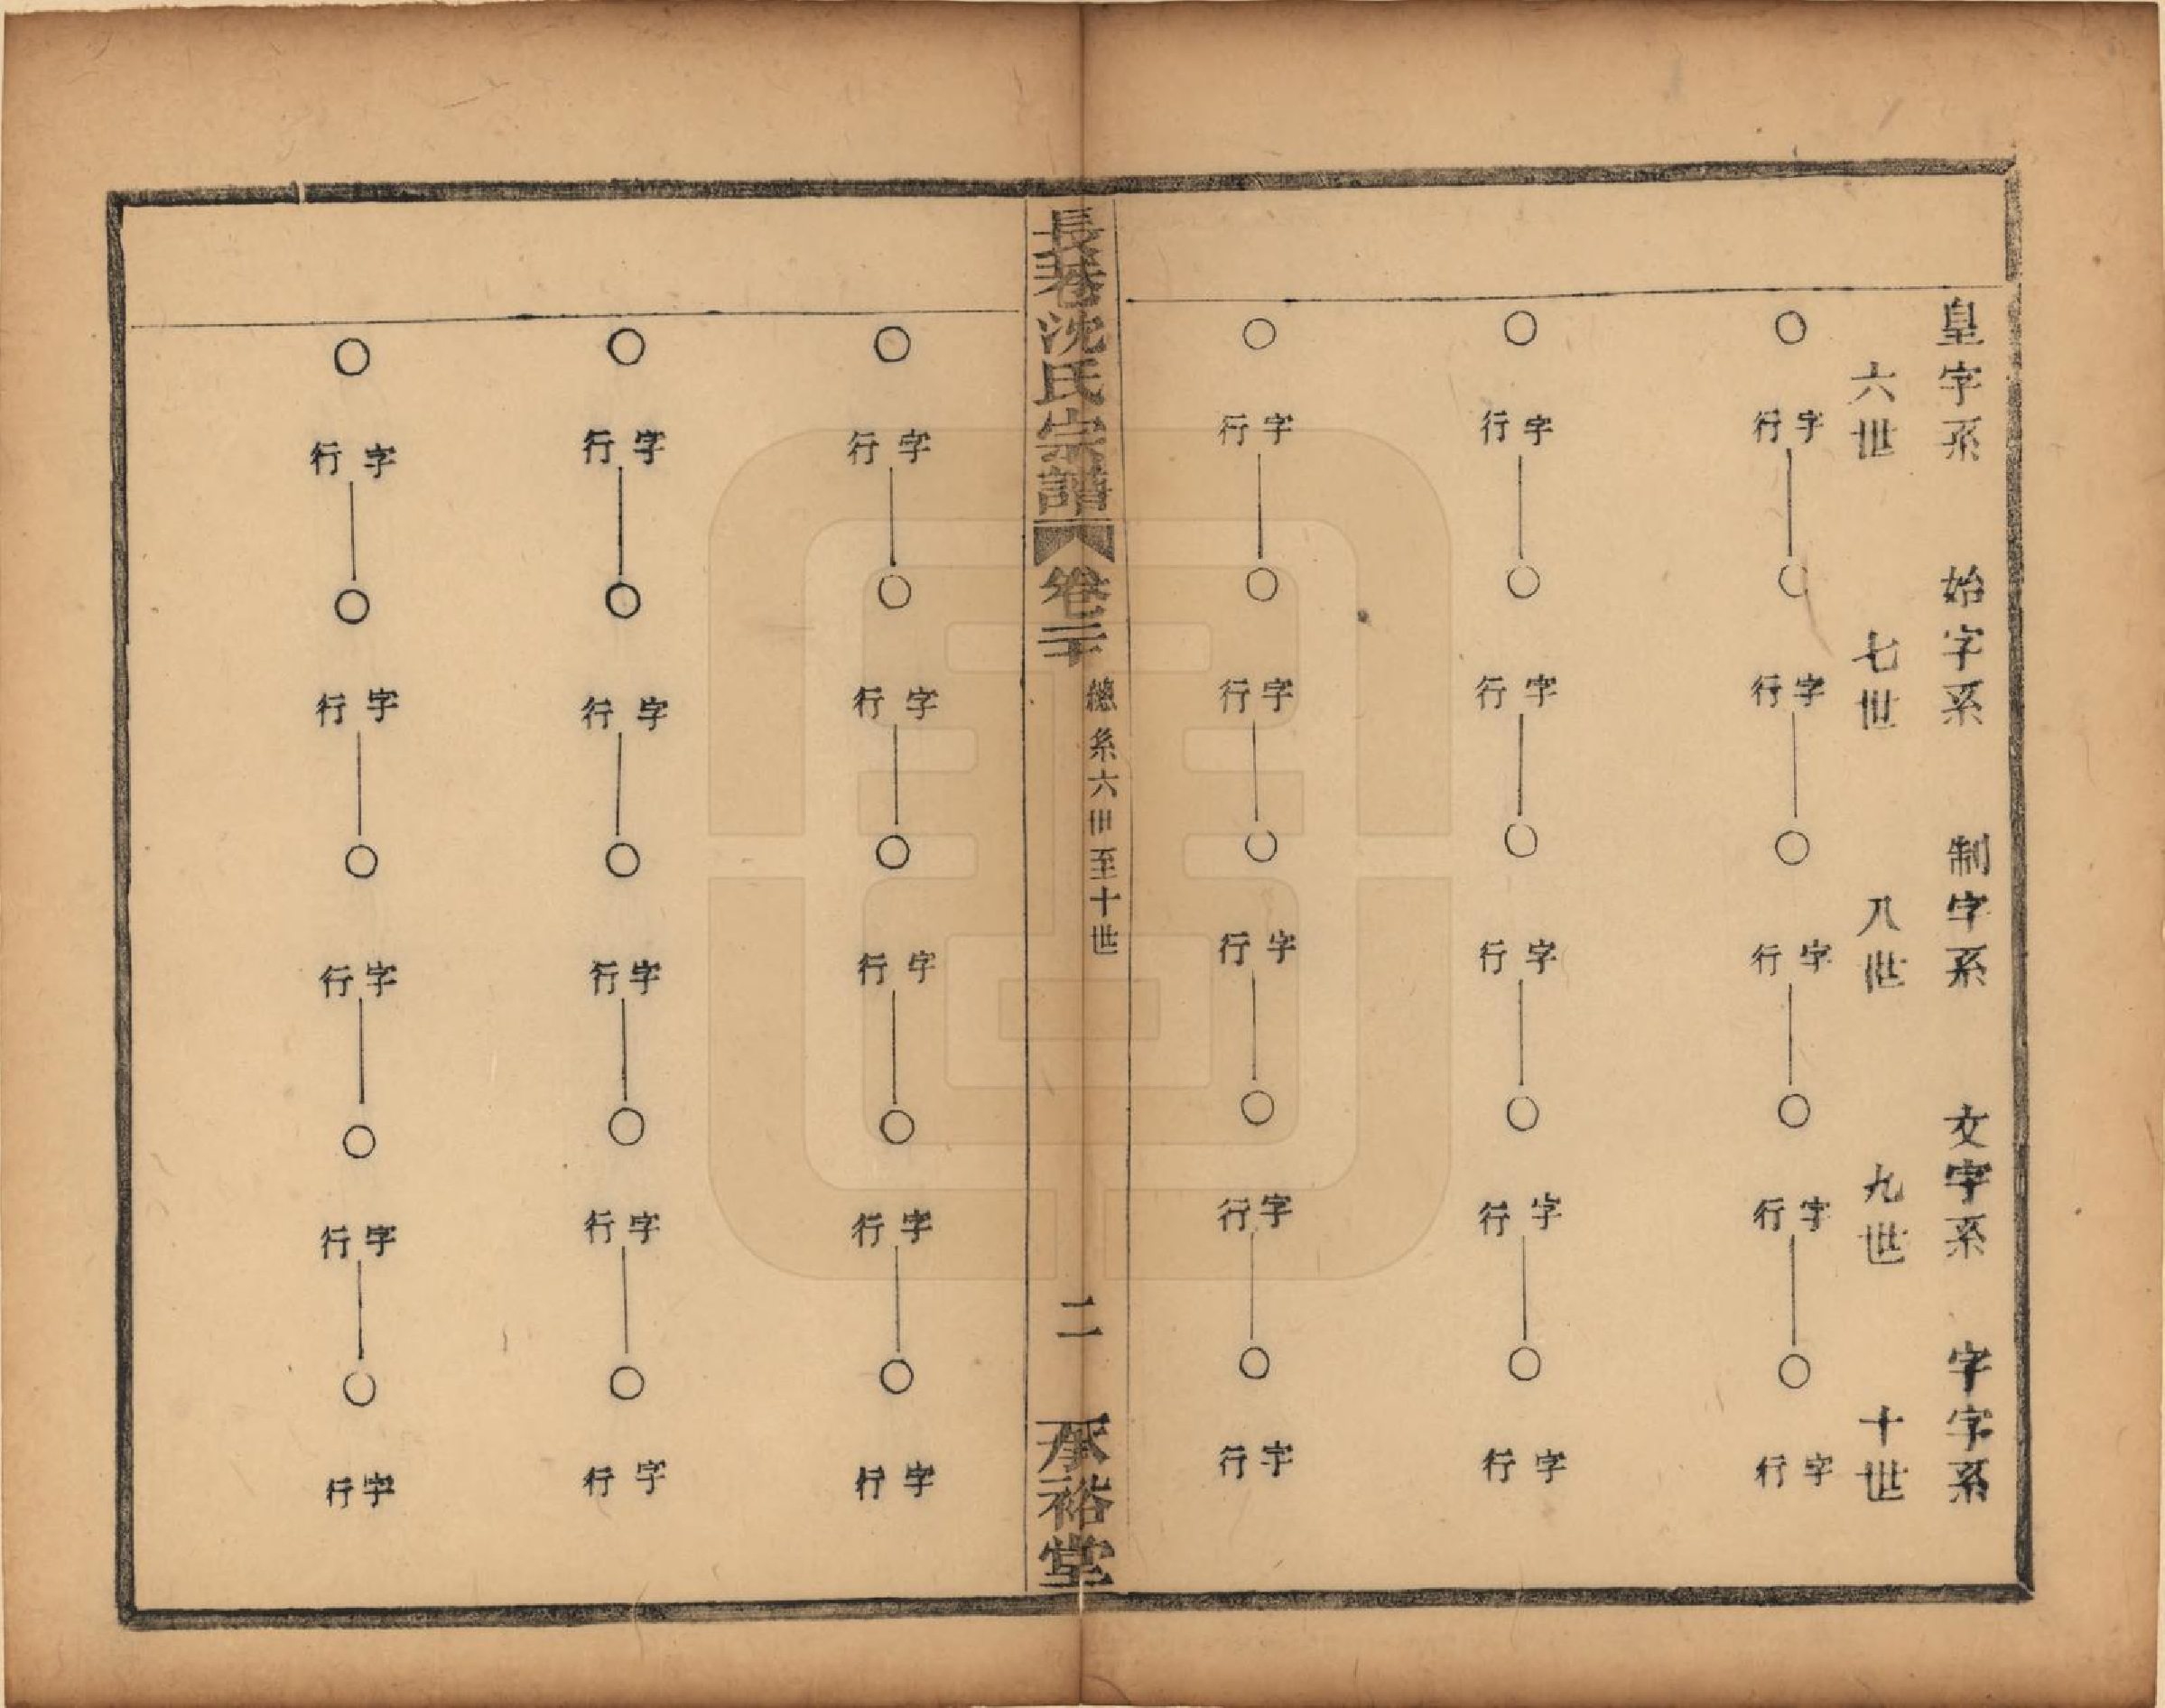 皇字系　始字系　制字系　文字系　字字系
六世　七世　八世　九世　十世
○字行　○字行　○字行　○字行　○字行
○字行　○字行　○字行　○字行　○字行
○字行　○字行　○字行　○字行　○字行
長巷沈氏宗譜　卷二十　總系六世至十世　二　承裕堂
○字行　○字行　○字行　○字行　○字行
○字行　○字行　○字行　○字行　○字行
○字行　○字行　○字行　○字行　○字行